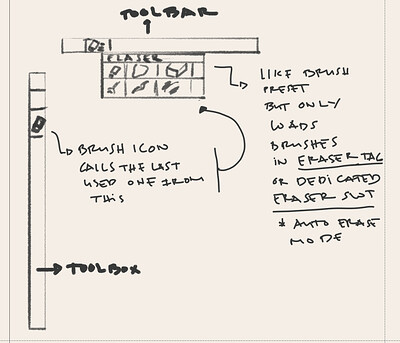 TOOLBAR
ERASER
LIKE BRUSH
PRESET
BUT ONLY
LOADS
BRUSHES
IN ERASER TAG
OR DEDICATED
ERASER SLOT
* AUTO ERASE
MODE
BRUSH ICON
CALLS THE LAST
USED ONE FROM
THIS
TOOLBOX